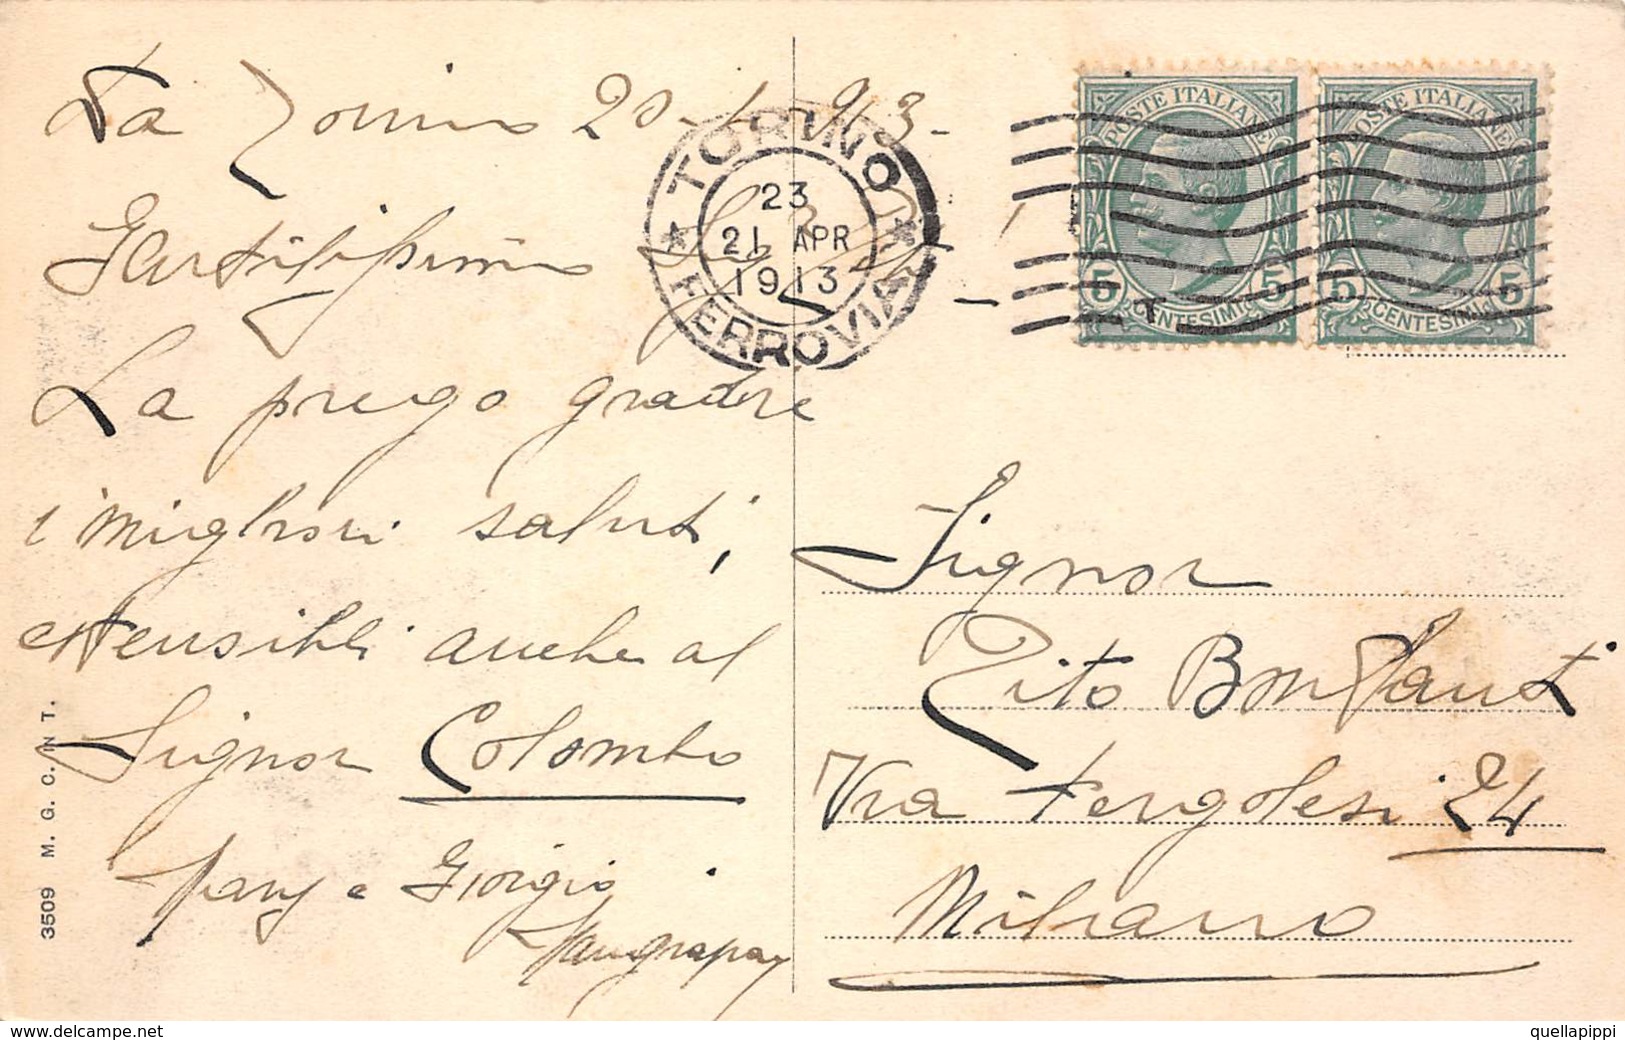 Da Torino 20-4-913-
Gentilissimo
La prego gradire
i migliori saluti,
estensibili anche al
Signor Colombo
e Giorgio
3509 M. G. C. IN T.
TORINO
23
21 APR
1913
* FERROVIA *
POSTE ITALIANE
5 CENTESIMI 5
POSTE ITALIANE
5 CENTESIMI 5
Signor
Tito Bonfanti
Via Pergolesi 24
Milano
delcampe.net
quellapippi